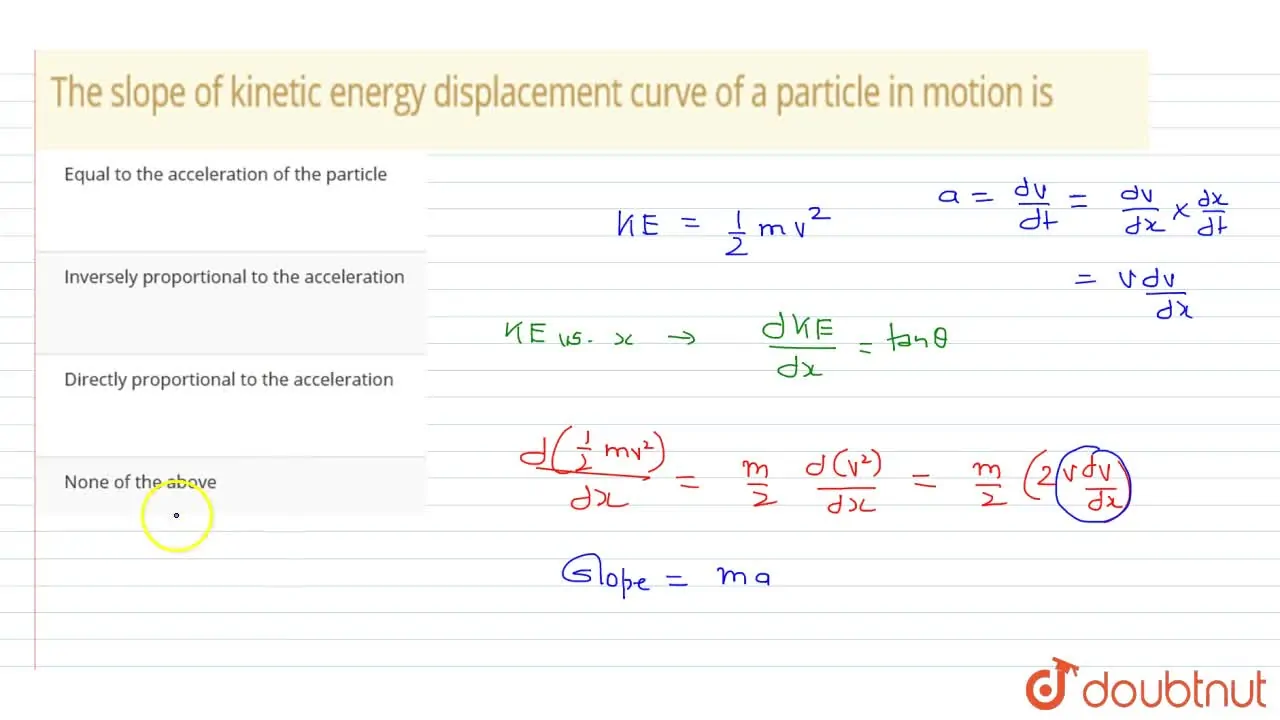 The slope of kinetic energy displacement curve of a particle in motion is
Equal to the acceleration of the particle
Inversely proportional to the acceleration
Directly proportional to the acceleration
None of the above
KE = 1/2 mv²
a = dv/dt = dv/dx × dx/dt
= v dv/dx
KE vs. x → dKE/dx = tanθ
d(1/2 mv²)/dx = m/2 d(v²)/dx = m/2 (2v dv/dx)
Slope = ma
doubtnut